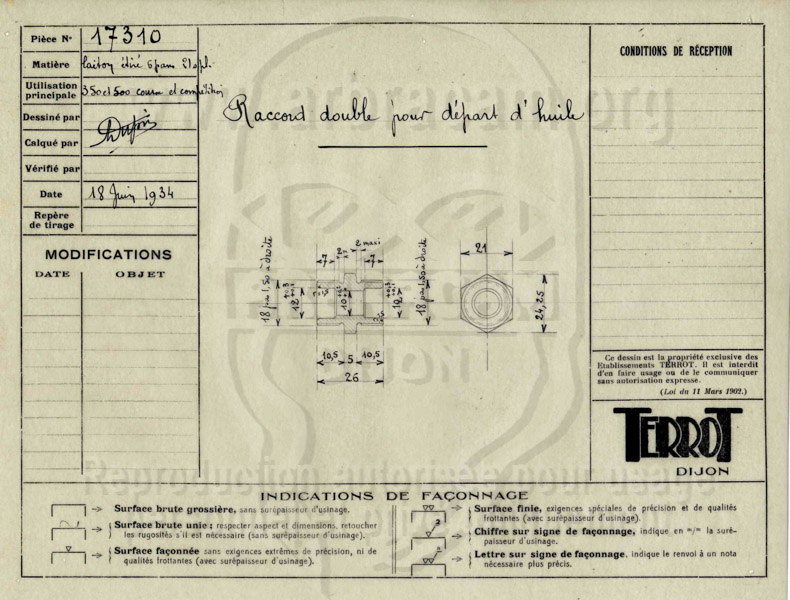 Pièce N° 17310
Matière laiton étiré 6 pans 21 s/pl.
Utilisation principale 350 et 500 course et compétition
Dessiné par
Calqué par
Vérifié par
Date 18 Juin 1934
Repère de tirage
MODIFICATIONS
DATE OBJET
Raccord double pour départ d'huile
CONDITIONS DE RÉCEPTION
2 maxi
7
7
21
18 pas 1,50 à droite
12
10
10
18 pas 1,50 à droite
24,25
10,5 5 10,5
26
Ce dessin est la propriété exclusive des
Etablissements TERROT. Il est interdit
d'en faire usage ou de le communiquer
sans autorisation expresse.
(Loi du 11 Mars 1902.)
TERROT
DIJON
INDICATIONS DE FAÇONNAGE
Surface brute grossière, sans surépaisseur d'usinage.
Surface brute unie ; respecter aspect et dimensions, retoucher
les rugosités s'il est nécessaire (sans surépaisseur d'usinage).
Surface façonnée sans exigences extrêmes de précision, ni de
qualités frottantes (avec surépaisseur d'usinage).
Surface finie, exigences spéciales de précision et de qualités
frottantes (avec surépaisseur d'usinage).
2
Chiffre sur signe de façonnage, indique en m/m la suré-
paisseur d'usinage.
Lettre sur signe de façonnage, indique le renvoi à un nota
nécessaire plus précis.
Reproduction autorisée pour usage